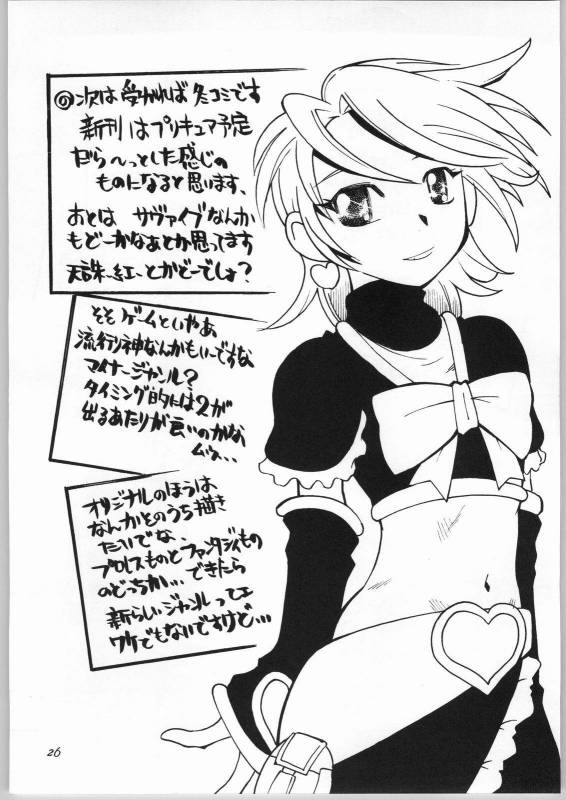 次は受かれば冬コミです
新刊はプリキュア予定
だら〜っとした感じの
ものになると思います、
あとは サヴァイブなんか
もどーかなぁとか思ってます
天誅〜紅〜とかどーでしょ?
そそ ゲームといやぁ
流行り神なんかもいーですな
マイナージャンル?
タイミング的には2が
出るあたりが良いのかな
ムゥ…
オリジナルのほうは
なんかそのうち描き
たいでな、
プロレスものとファンタジィもの
のどっちか… できたら
新らしいジャンルってェ
ワケでもないですけど…
26